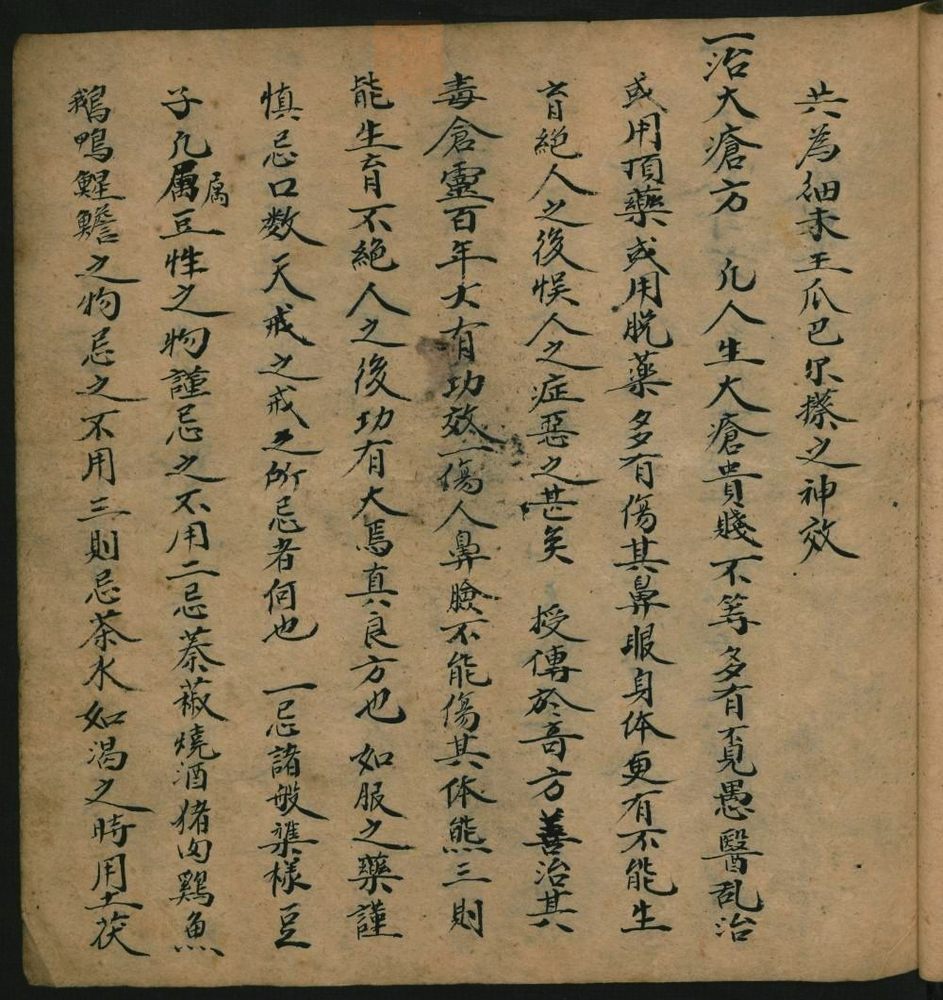 共為細末王瓜巴尔搽之神效
一治大瘡方 凡人生大瘡貴賤不等多有不見愚醫乱治
或用頂藥或用脱藥多有傷其鼻眼身体更有不能生
育絕人之後悮人之症惡之甚矣 授傳於奇方善治其
毒倉靈百年大有功效一傷人鼻臉不能傷其体熊三則
能生育不絕人之後功有大焉真良方也如服之藥謹
慎忌口数天戒之戒之所忌者何也 一忌諸般雜樣豆
子凡属属豆性之物謹忌之不用二忌荼菽燒酒猪肉鷄魚
鵝鴨鯹鱣之物忌之不用三則忌茶水如渴之時用土茯